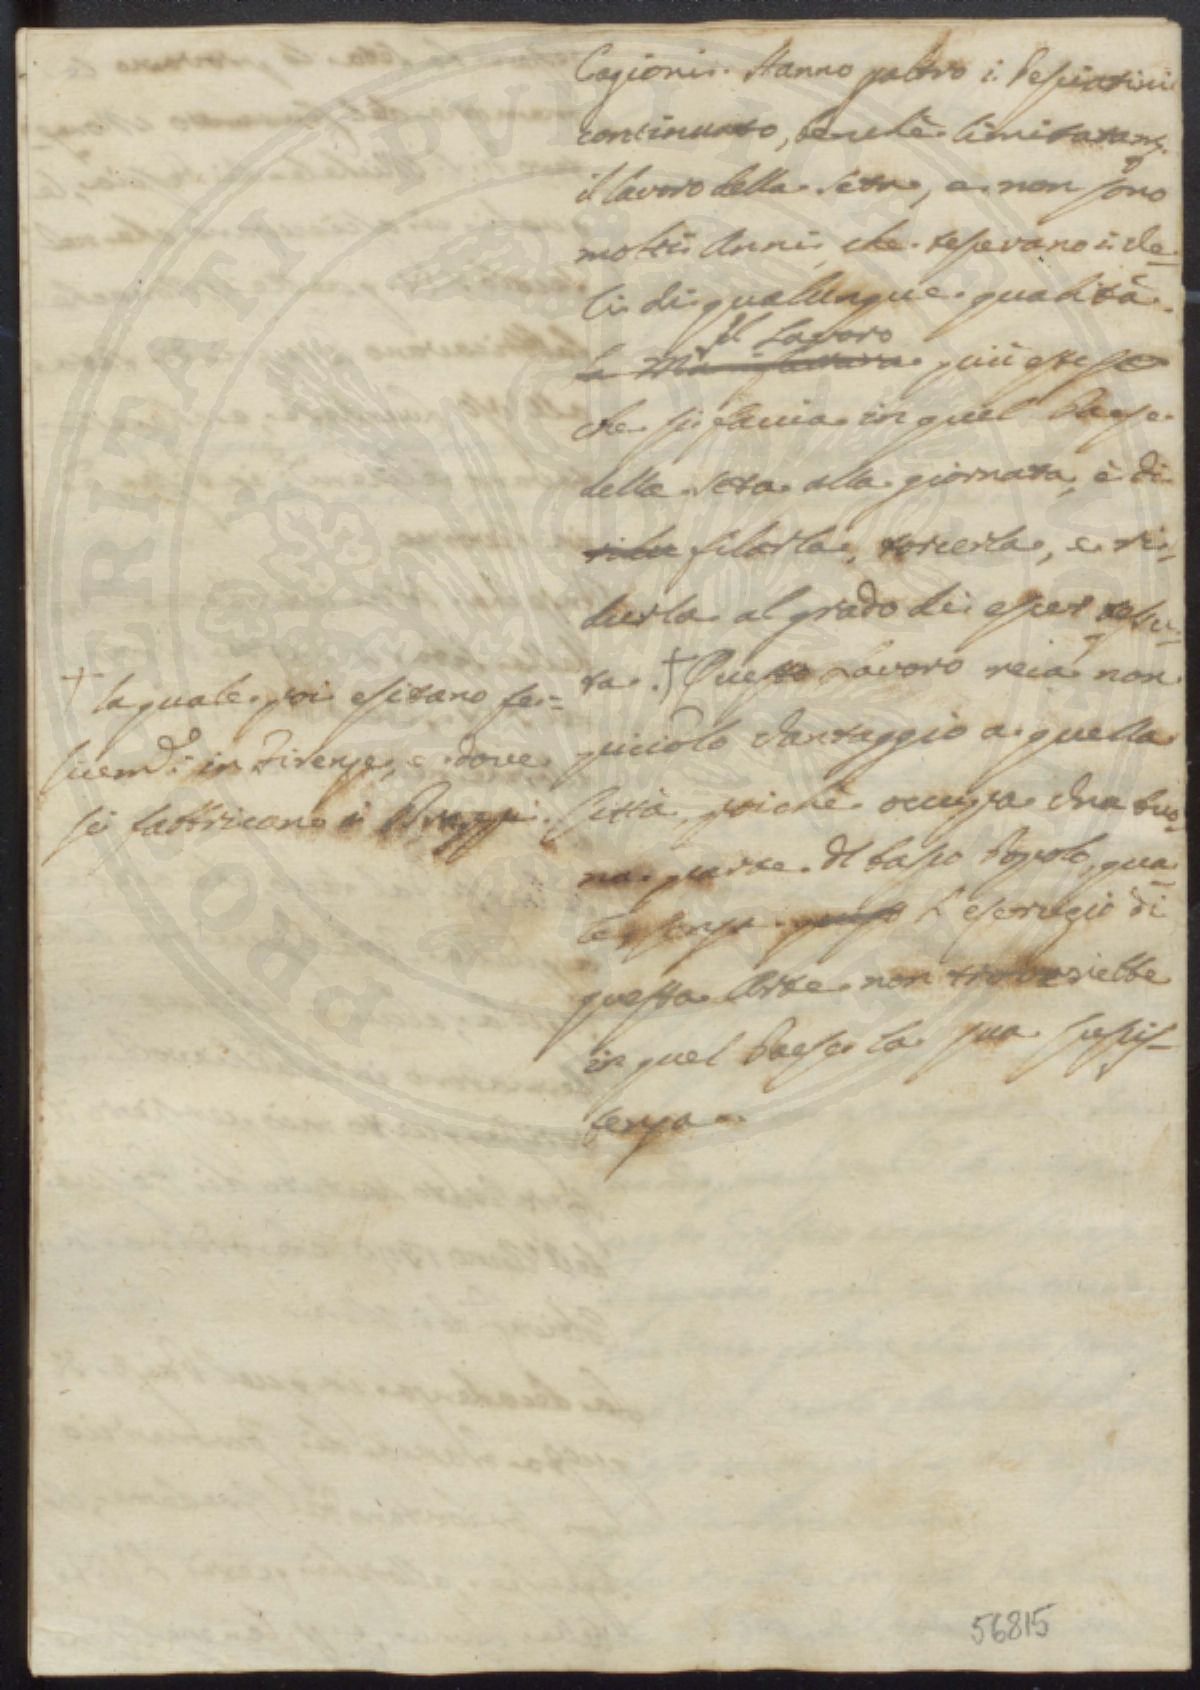 Cagioni. Hanno peltro i Pesciatini
continuato, benchè limitatam.
il lavoro della Seta, e non sono
molti Anni, che tessevano i Ve=
li di qualunque qualità.
Il Lavoro
la più esteso
che si faccia in quel Paese
della seta alla giornata, è di
filarla, torcerla, e ri=
durla al grado di esser tessu=
ta. † Questo Lavoro recia non
picciolo vantaggio a quella
Città, poichè occupa una buo=
na parte del basso Popolo, qua=
le senza l'esercizio di
questa Arte non troverebbe
in quel Paese la sua sussis=
tenza.
† la quale poi esitano fa=
cend.ⁱ in Firenze, e dove
si fabbricano i Drappi.
56815
PROPERITATI PVBLICAE